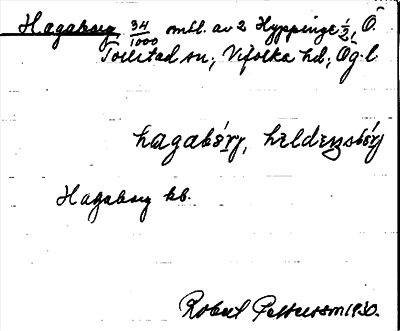 Hagaborg 34/1000 mtl. av 2 Hyppinge 1/2, Ö.
Tollstad sn; Vifolka hd; Ög. l
hagabórj, heldensbórj
Hagaborg kb.
Robert Pettersson 1930.